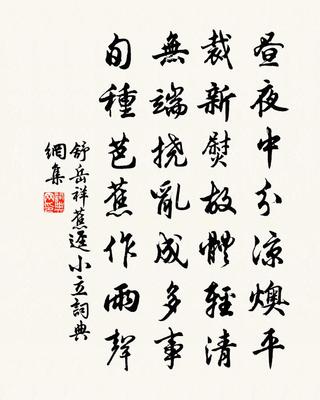 昼夜中分凉燠平
裁新熨故體輕清
無端撓亂成多事
旬種芭蕉作雨聲
舒岳祥蕉逕小立詞典
網集